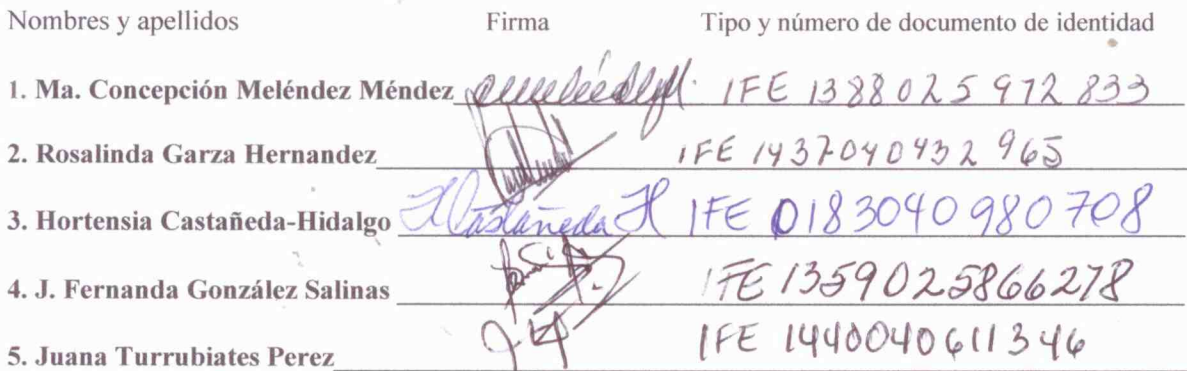 Nombres y apellidos Firma Tipo y número de documento de identidad
1. Ma. Concepción Meléndez Méndez IFE 1388025972833
2. Rosalinda Garza Hernandez IFE 1437040432965
3. Hortensia Castañeda-Hidalgo HCastañeda H IFE 0183040980708
4. J. Fernanda González Salinas IFE 1359025866278
5. Juana Turrubiates Perez IFE 1440040611346